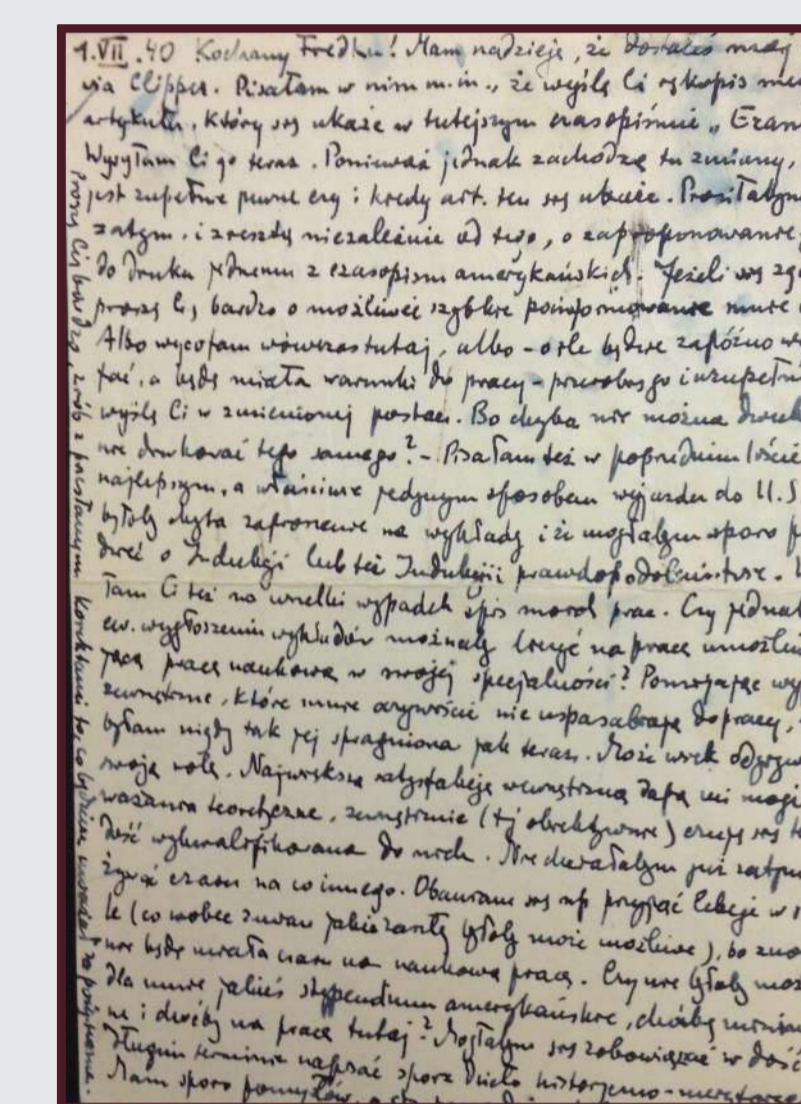 1.VII.40 Kochany Fredku! Mam nadzieję, że dostałeś mój
via Clipper. Pisałam w nim m.in., że wyślę Ci rękopis me
artykułu, który się ukaże w tutejszym czasopiśmie „Exam
Wysyłam Ci go teraz. Ponieważ jednak zachodzą tu zmiany,
jest zupełnie pewne czy i kiedy art. ten się ukaże. Prosiłabym
zatym, i zresztą niezależnie od tego, o zaproponowanie
do druku jednemu z czasopism amerykańskich. Jeżeli się zg
proszę Cię bardzo o możliwie szybkie poinformowanie mnie
Albo wycofam wówczas tutaj, albo - o ile będzie zapóźno w
fać, a będę miała warunki do pracy - przerobię go i uzupełni
wyślę Ci w zmienionej postaci. Bo chyba nie można
nie drukować tego samego? - Pisałam też w poprzednim liście
najlepszym, a właściwie jedynym sposobem wyjazdu do U.S
byłoby chyba zaproszenie na wykłady i że mogłabym sporo p
dzieć o Indukcji lub też Indukcji i prawdopodobieństwie.
łam Ci też na wszelki wypadek spis moich prac. Czy jednak
ew. wygłoszeniu wykładów możnaby liczyć na pracę umożliwi
jącą pracę naukową w swojej specjalności? Pomijając
zewnętrzne, które mnie oczywiście nie uspasabiają do pracy,
byłam nigdy tak jej spragniona jak teraz. Może wiek odgryw
swoją rolę. Największą satysfakcję wewnętrzną dają mi
ważania teoretyczne, zewnętrznie (tj obiektywnie) czuję się te
dość wykwalifikowana do nich. Nie chciałabym już
żywać czasu na co innego. Obawiam się np przyjąć lekcje w
le (co wobec zmian byłoby może możliwe), bo zno
nie będę miała czasu na naukową pracę. Czy nie byłoby moż
dla mnie jakieś stypendium amerykańskie, choćby minim
ne i choćby na pracę tutaj? Mogłabym się zobowiązać w dość
długim terminie napisać spore dzieło historyczno-
Mam sporo pomysłów,
Proszę Cię bardzo, zrób z przesłanym korektami to, co będziesz uważał za pożyteczne.